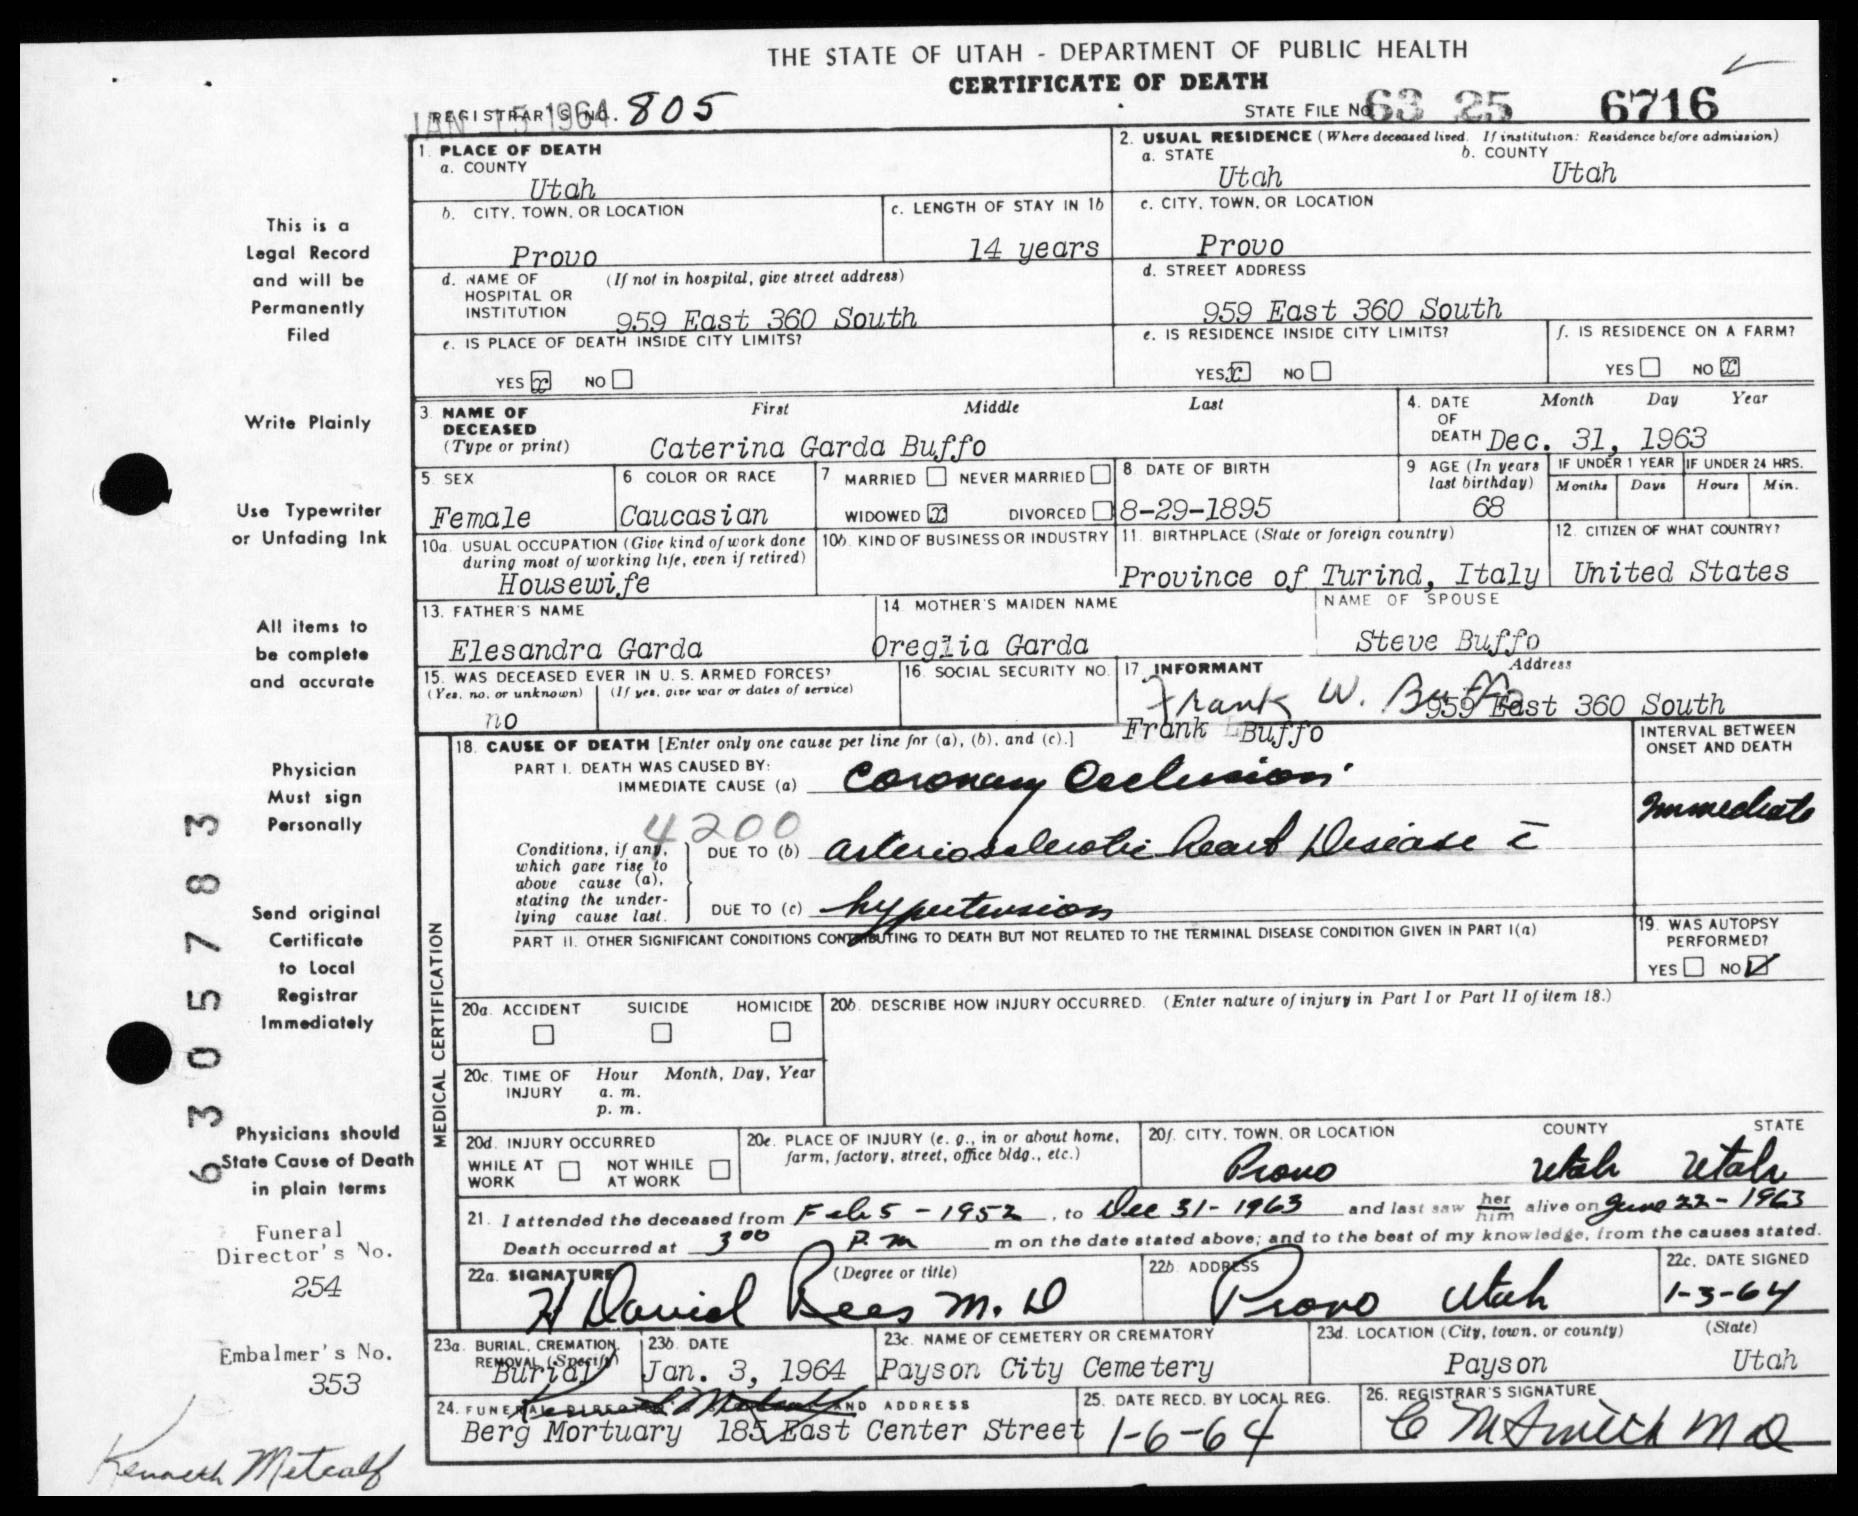 THE STATE OF UTAH - DEPARTMENT OF PUBLIC HEALTH
CERTIFICATE OF DEATH
JAN 15 1964
REGISTRAR'S NO. 805
STATE FILE NO. 63 25 6716
1. PLACE OF DEATH
a. COUNTY
Utah
2. USUAL RESIDENCE (Where deceased lived. If institution: Residence before admission)
a. STATE b. COUNTY
Utah Utah
b. CITY, TOWN, OR LOCATION
Provo
c. LENGTH OF STAY IN 1b
14 years
c. CITY, TOWN, OR LOCATION
Provo
d. NAME OF HOSPITAL OR INSTITUTION (If not in hospital, give street address)
959 East 360 South
d. STREET ADDRESS
959 East 360 South
e. IS PLACE OF DEATH INSIDE CITY LIMITS?
YES x NO
e. IS RESIDENCE INSIDE CITY LIMITS?
YES x NO
f. IS RESIDENCE ON A FARM?
YES NO x
3. NAME OF DECEASED (Type or print)
First Middle Last
Caterina Garda Buffo
4. DATE OF DEATH Month Day Year
Dec. 31, 1963
5. SEX
Female
6 COLOR OR RACE
Caucasian
7 MARRIED NEVER MARRIED
WIDOWED x DIVORCED
8 DATE OF BIRTH
8-29-1895
9 AGE (In years last birthday)
68
IF UNDER 1 YEAR
Months Days
IF UNDER 24 HRS.
Hours Min.
10a. USUAL OCCUPATION (Give kind of work done during most of working life, even if retired)
Housewife
10b. KIND OF BUSINESS OR INDUSTRY
11. BIRTHPLACE (State or foreign country)
Province of Turind, Italy
12. CITIZEN OF WHAT COUNTRY?
United States
13. FATHER'S NAME
Elesandra Garda
14 MOTHER'S MAIDEN NAME
Oreglia Garda
NAME OF SPOUSE
Steve Buffo
15. WAS DECEASED EVER IN U. S. ARMED FORCES?
(Yes, no, or unknown) (If yes, give war or dates of service)
no
16. SOCIAL SECURITY NO.
17. INFORMANT Address
Frank W. Buffo
959 East 360 South
Frank Buffo
MEDICAL CERTIFICATION
18. CAUSE OF DEATH [Enter only one cause per line for (a), (b), and (c).]
PART I. DEATH WAS CAUSED BY:
IMMEDIATE CAUSE (a) Coronary Occlusion
4200
Conditions, if any, which gave rise to above cause (a), stating the underlying cause last.
DUE TO (b) arteriosclerotic heart Disease c̄
DUE TO (c) hypertension
INTERVAL BETWEEN ONSET AND DEATH
Immediate
PART II. OTHER SIGNIFICANT CONDITIONS CONTRIBUTING TO DEATH BUT NOT RELATED TO THE TERMINAL DISEASE CONDITION GIVEN IN PART I(a)
19. WAS AUTOPSY PERFORMED?
YES NO ✓
20a. ACCIDENT SUICIDE HOMICIDE
20b. DESCRIBE HOW INJURY OCCURRED. (Enter nature of injury in Part I or Part II of item 18.)
20c. TIME OF INJURY Hour Month, Day, Year
a. m.
p. m.
20d. INJURY OCCURRED
WHILE AT WORK NOT WHILE AT WORK
20e. PLACE OF INJURY (e. g., in or about home, farm, factory, street, office bldg., etc.)
20f. CITY, TOWN, OR LOCATION COUNTY STATE
Provo Utah Utah
21. I attended the deceased from Feb 5 - 1952, to Dec 31 - 1963 and last saw her him alive on June 22 - 1963
Death occurred at 3 00 P. m m on the date stated above; and to the best of my knowledge, from the causes stated.
22a. SIGNATURE (Degree or title)
H David Rees M. D
22b. ADDRESS
Provo Utah
22c. DATE SIGNED
1-3-64
23a. BURIAL, CREMATION, REMOVAL (Specify)
Burial
23b. DATE
Jan. 3, 1964
23c. NAME OF CEMETERY OR CREMATORY
Payson City Cemetery
23d. LOCATION (City, town, or county) (State)
Payson Utah
24. FUNERAL DIRECTOR AND ADDRESS
Berg Mortuary 185 East Center Street
25. DATE RECD. BY LOCAL REG.
1-6-64
26. REGISTRAR'S SIGNATURE
C M Smith M D
This is a
Legal Record
and will be
Permanently
Filed
Write Plainly
Use Typewriter
or Unfading Ink
All items to
be complete
and accurate
Physician
Must sign
Personally
Send original
Certificate
to Local
Registrar
Immediately
Physicians should
State Cause of Death
in plain terms
Funeral
Director's No.
254
Embalmer's No.
353
Kenneth Metcalf
6305783